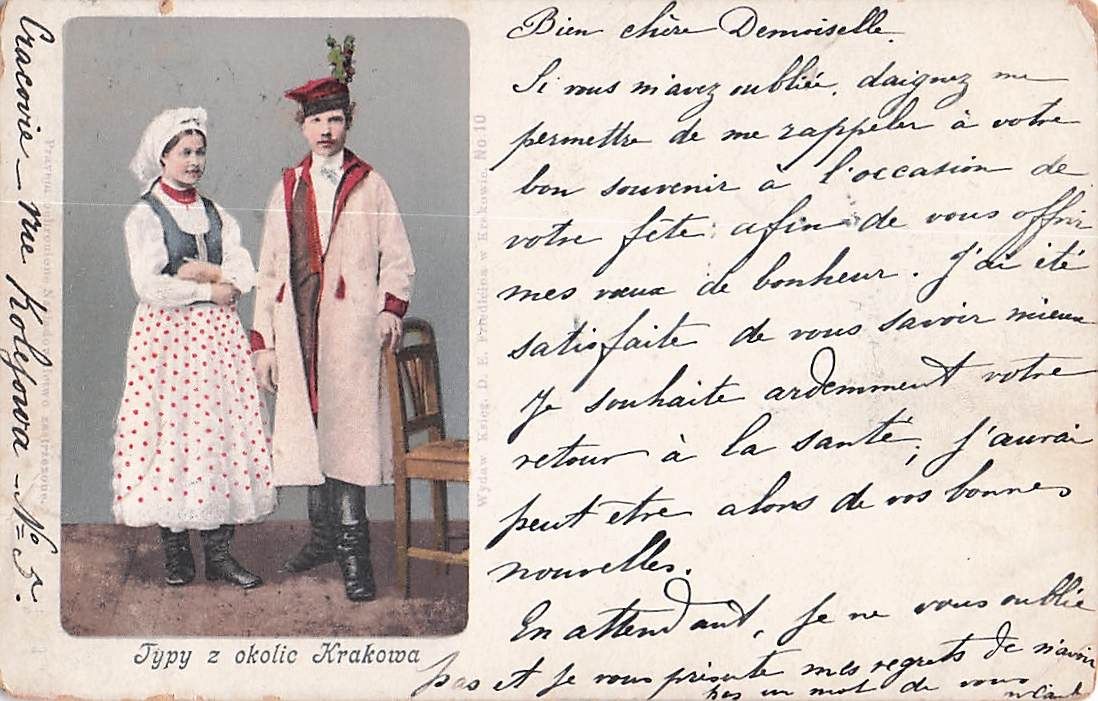 Cracovie - rue Kolejowa - No 5.
Prawem ochronione Naśladownictwo zastrzeżone.
Wydaw. Księg. D. E. Friedleina w Krakowie. No 10
Typy z okolic Krakowa
Bien chère Demoiselle.
Si vous m'avez oubliée, daignez me
permettre de me rappeler à votre
bon souvenir à l'occasion de
votre fête, afin de vous offrir
mes vœux de bonheur. J'ai été
satisfaite de vous savoir mieux
je souhaite ardemment votre
retour à la santé, j'aurai
peut être alors de vos bonnes
nouvelles.
En attendant, je ne vous oublie
pas et je vous présente mes regrets de n'avoir
pas un mot de vous